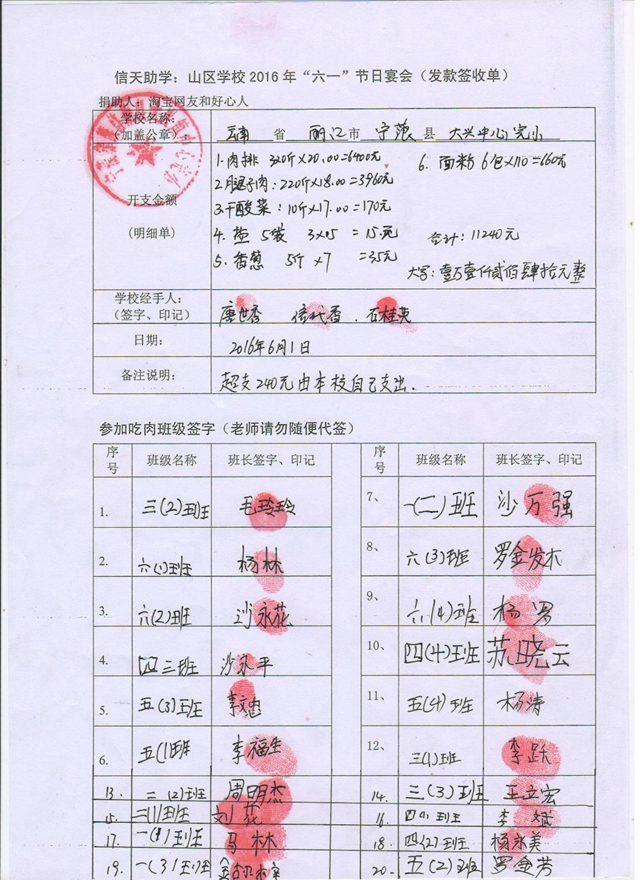 信天助学：山区学校2016年“六一”节日宴会（发款签收单）
捐助人：淘宝网友和好心人
学校名称：
（加盖公章）
云南 省 丽江 市 宁蒗 县 大兴中心完小
1.肉排 320斤×20.00=6400元 6. 面粉 6包×110=660元
2.腿子肉：220斤×18.00=3960元
开支金额
3.干酸菜：10斤×17.00=170元
(明细单)
4. 盐 5袋 3×5 =15元 合计：11240元
5. 香葱 5斤×7 =35元
大写：壹万壹仟贰佰肆拾元整
学校经手人：
（签字、印记）
唐世香 石桂英
日期：
2016年6月1日
备注说明：
超支240元由本校自己支出.
参加吃肉班级签字（老师请勿随便代签）
序号 班级名称 班长签字、印记 序号 班级名称 班长签字、印记
1. 三(2)班 毛玲玲 7、 一(二)班 沙万强
2. 六(1)班 杨林 8、 六(3)班 罗金发
3. 六(2)班 沙永花 9、 六(4)班 杨
4. 四三班 沙永平 10、 四(4)班 苏晓云
5. 五(3)班 李文忠 11、 五(4)班 杨涛
6. 五(1)班 李福生 12、 三(1)班 李跃
13. 二(2)班 周明杰 14. 三(3)班 王立宏
15. 二(1)班 刘花 16. 四(1)班 李斌
17. 一(1)班 马林 18. 四(2)班 杨永美
19. 一(3)班 20. 五(2)班 罗金芳